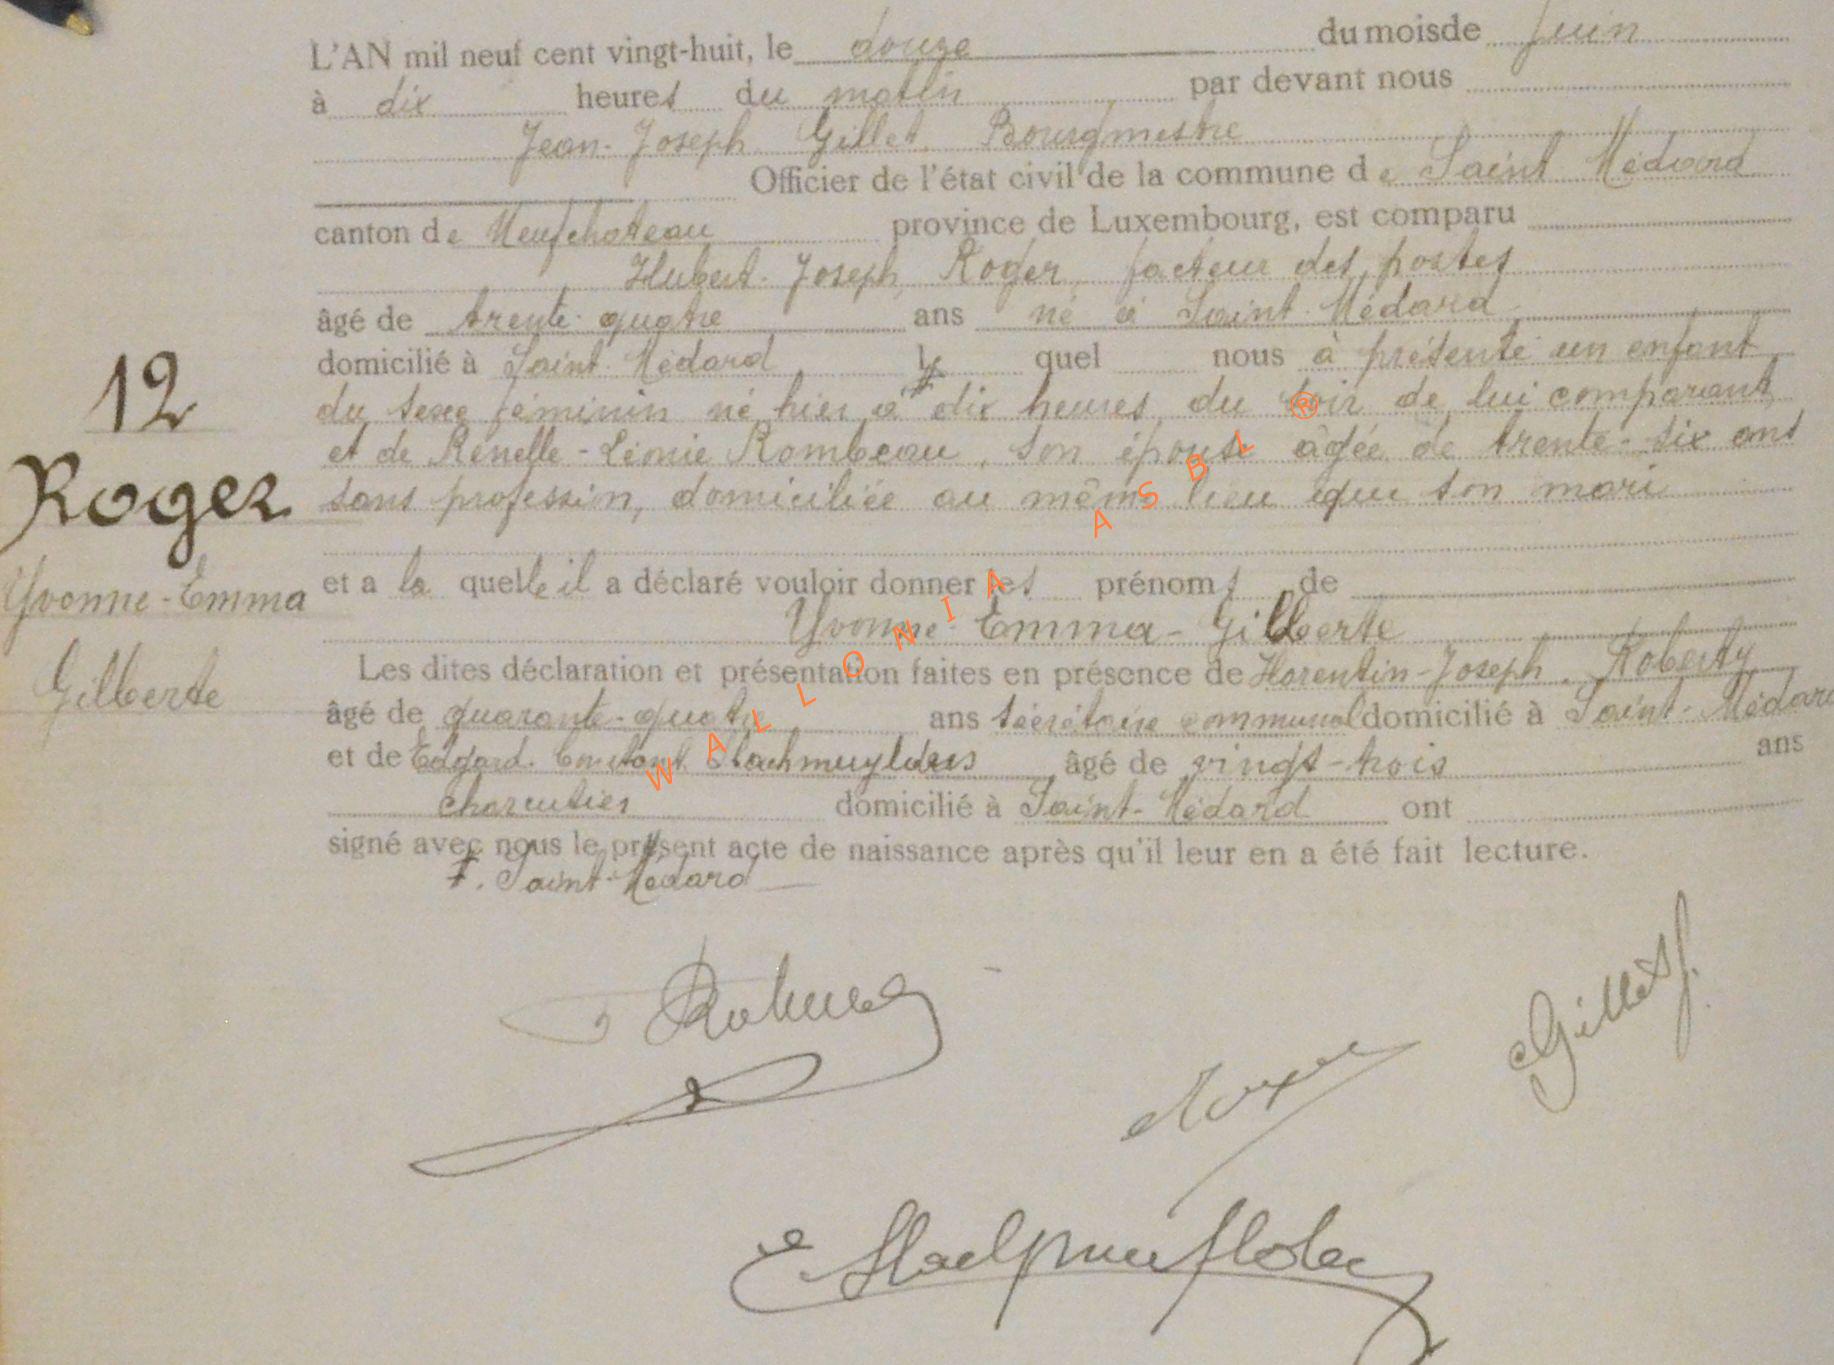 L'AN mil neuf cent vingt-huit, le douze du mois de Juin
à dix heures du matin par devant nous
Jean-Joseph Gillet, Bourgmestre
Officier de l'état civil de la commune de Saint-Médard
canton de Neufchateau province de Luxembourg, est comparu
Hubert-Joseph, Roger, facteur des postes
âgé de trente-quatre ans né à Saint-Médard
domicilié à Saint-Médard lequel nous à présenté un enfant
du sexe féminin né hier à dix heures du soir de lui comparant
et de Renelle-Léonie Rombeau, son épouse âgée de trente-six ans
sans profession, domiciliée au même lieu que son mari
12
Roger
Yvonne-Emma
Gilberte
et a la quelle il a déclaré vouloir donner les prénoms de
Yvonne-Emma-Gilberte
Les dites déclaration et présentation faites en présence de Florentin-Joseph, Roberty
âgé de quarante-quatre ans secrétaire communal domicilié à Saint-Médard
et de Edgard-Constant âgé de vingt-trois ans
charcutier domicilié à Saint-Médard ont
signé avec nous le présent acte de naissance après qu'il leur en a été fait lecture.
Saint-Médard
Roger
Gillet J.
WALLONIA ASBL ®